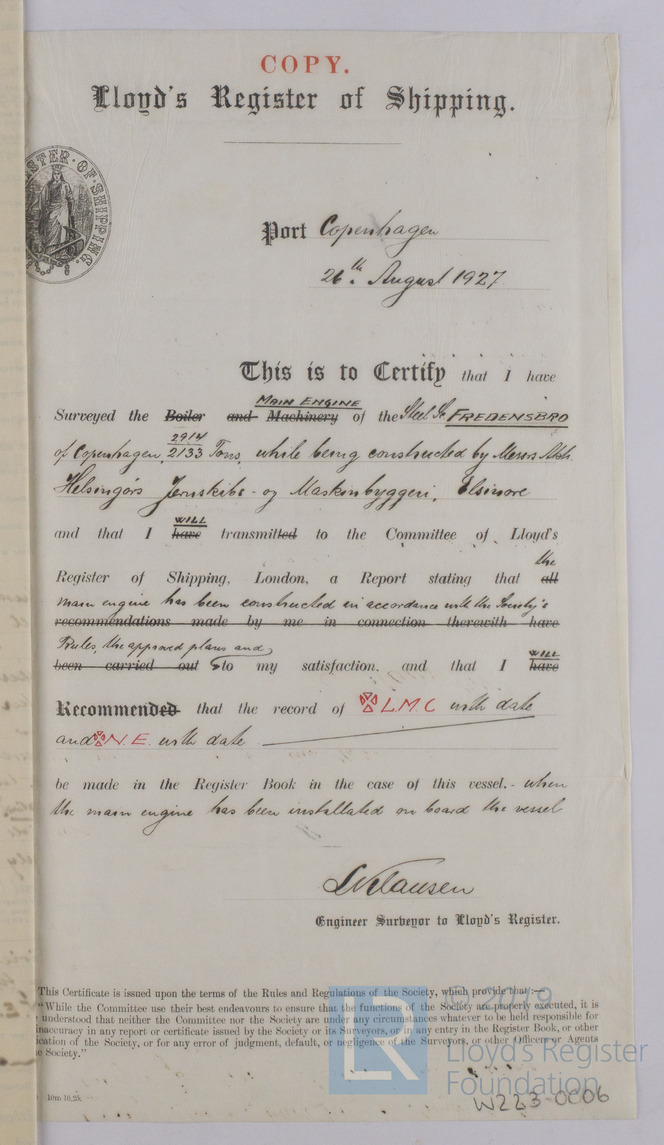 COPY.
Lloyd's Register of Shipping.
STER·OF·SHIPPING.
Port Copenhagen
26th. August 1927
This is to Certify that I have
MAIN ENGINE
Surveyed the Boiler and Machinery of the Steel Sr. FREDENSBRO
2914
of Copenhagen, 2133 Tons, while being constructed by Messrs Akts.
Helsingørs Jernskibs- og Maskinbyggeri, Elsinore
WILL
and that I have transmitted to the Committee of Lloyd's
the
Register of Shipping, London, a Report stating that all
main engine has been constructed in accordance with the Society's
recommendations made by me in connection therewith have
Rules, the approved plans and
WILL
been carried out to my satisfaction, and that I have
Recommended that the record of ✠ L.M.C with date
and ✠ N.E. with date
be made in the Register Book in the case of this vessel.- when
the main engine has been installated on board the vessel
Engineer Surveyor to Lloyd's Register.
This Certificate is issued upon the terms of the Rules and Regulations of the Society, which provide that:—
"While the Committee use their best endeavours to ensure that the functions of the Society are properly executed, it is
understood that neither the Committee nor the Society are under any circumstances whatever to be held responsible for
inaccuracy in any report or certificate issued by the Society or its Surveyors, or in any entry in the Register Book, or other
ication of the Society, or for any error of judgment, default, or negligence of the Surveyors, or other Officers or Agents
e Society."
10m 10,25.
© 2019
LR
Lloyd's Register
Foundation
W223-0006